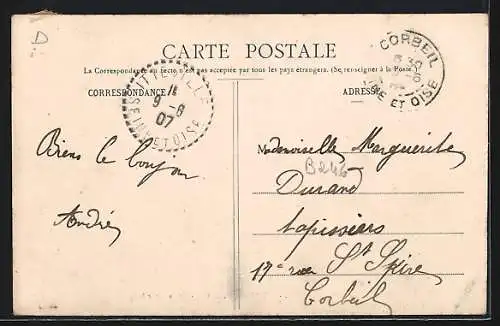 CARTE POSTALE
La Correspondance au recto n'est pas acceptée par tous les pays étrangers. (Se renseigner à la Poste.)
CORRESPONDANCE
ADRESSE
ITTEVILLE
11
9 -6
07
SEINE ET OISE
CORBEIL
ET OISE
Biens le bonjour
André
Mademoiselle Marguerite
Durand
tapissiers
17 rue St Spire
Corbeil